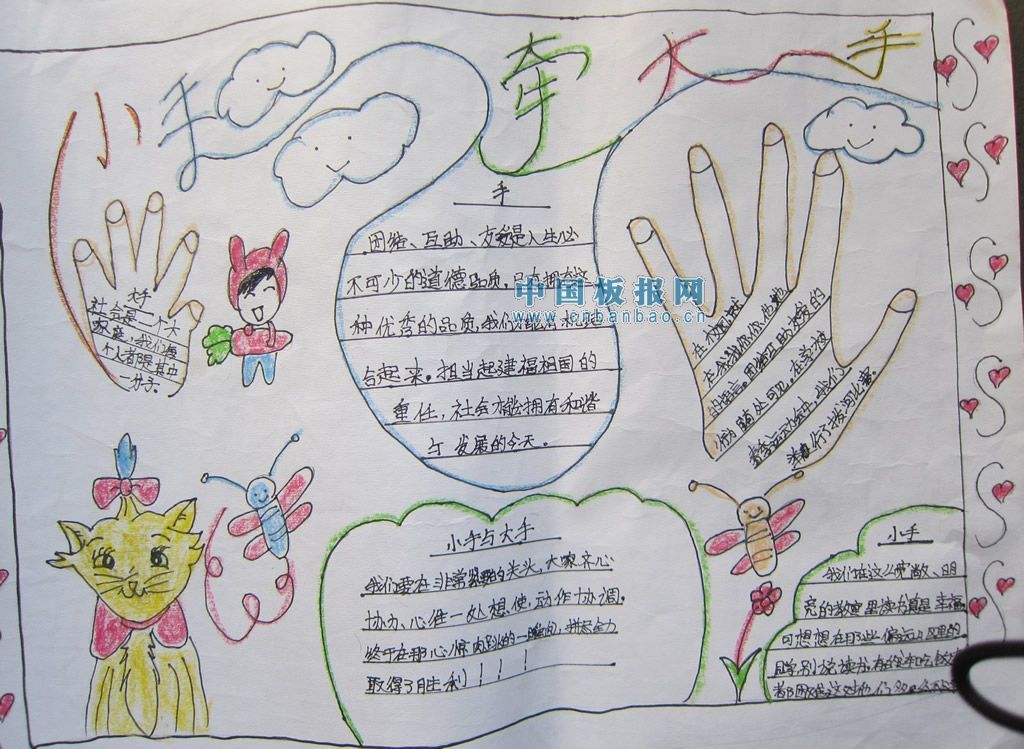 小手牵大手
大手
社会是一个大
家庭，我们每
个人都是其中
一份子。
手
团结、互助、友爱是人生必
不可少的道德品质，只有拥有这
种优秀的品质，我们才能
合起来。担当起建福祖国的
重任，社会才能拥有和谐
与发展的今天。
中国板报网
www.cnbanbao.cn
在校园就
的
行为随处可见，在学校
春季运动会中，我们
进行了拔河比赛。
小手与大手
我们要在非常紧要的关头，大家齐心
协力、心往一处想使，动作协调。
终于在那心惊肉跳的一瞬间，拼尽全力
取得了胜利！！！
小手
我们在这么宽敞、明
亮的教室里读书真是幸福，
可想想在那些偏远山区里的
同学别说读书，
都困难